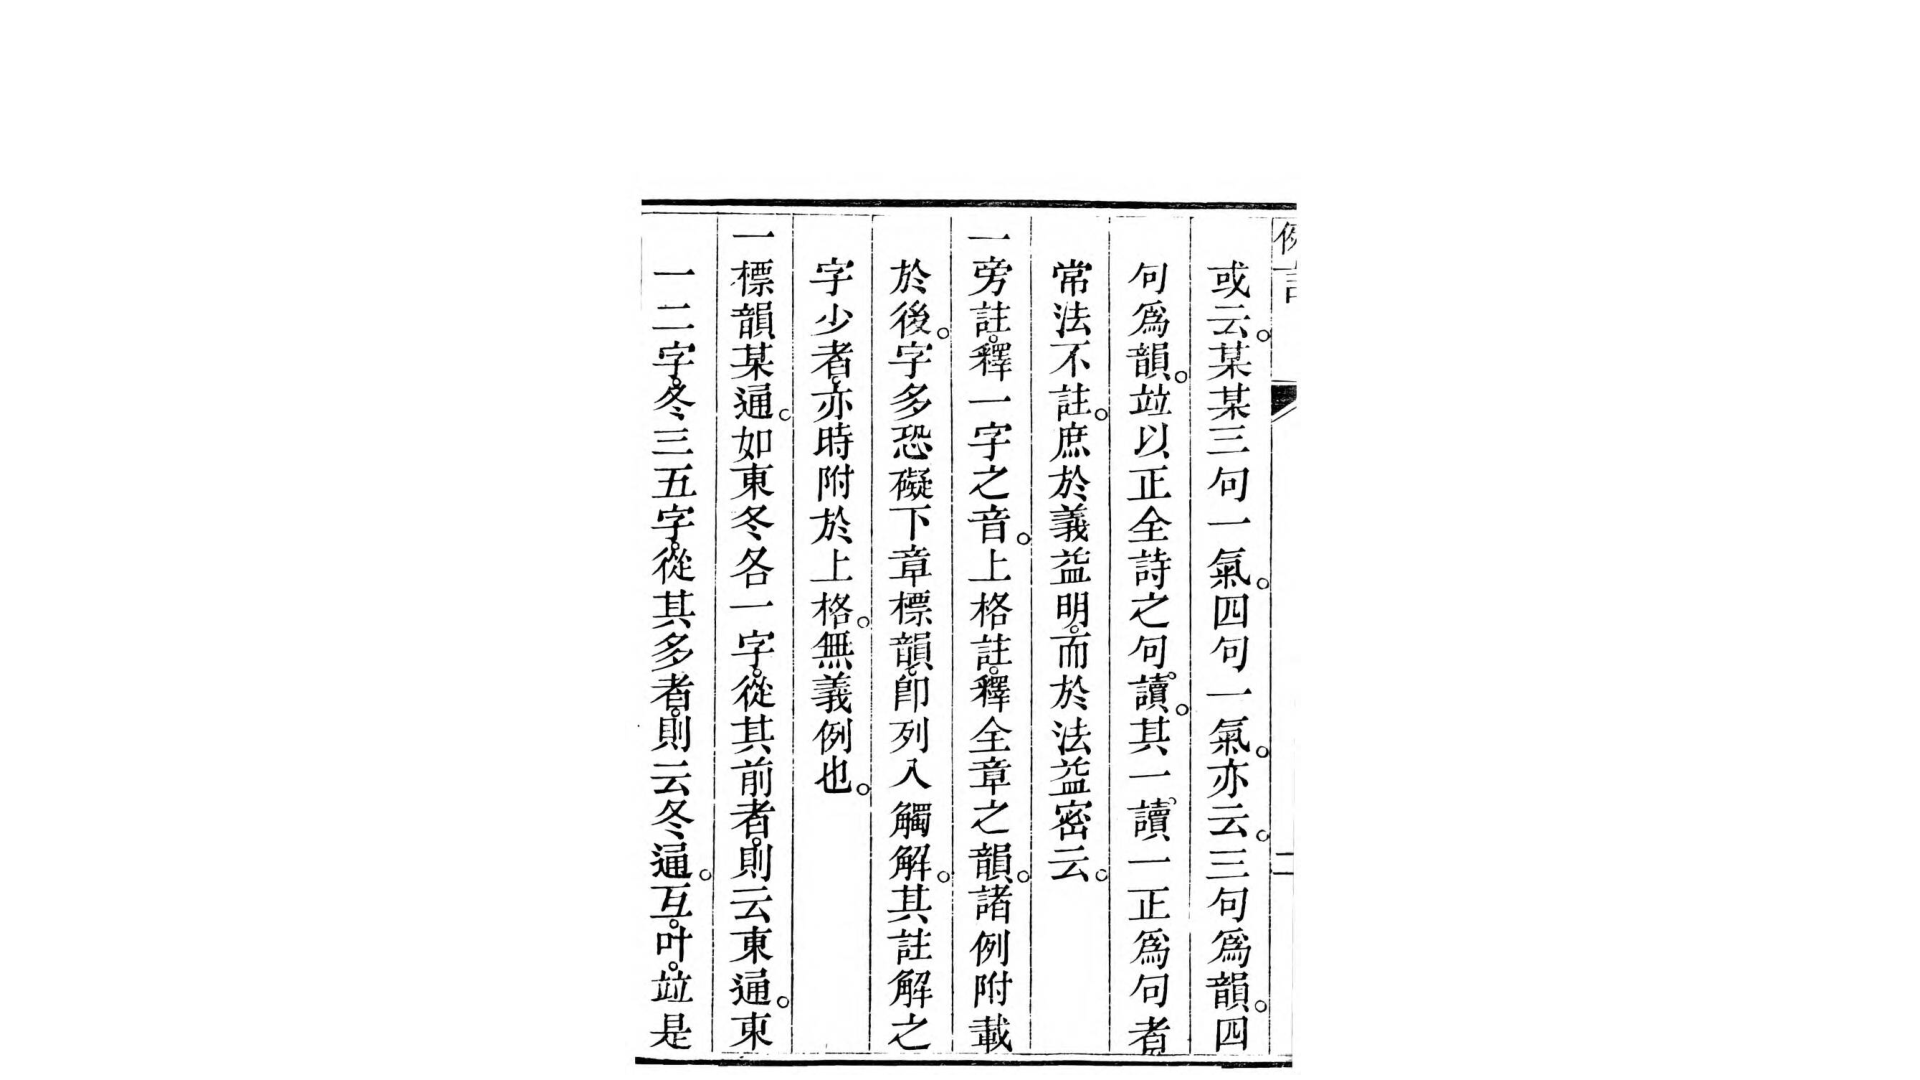 例言
二
或云。某某三句一氣。四句一氣。亦云。三句爲韻。四
句爲韻。竝以正全詩之句。讀。其一讀一正爲句者
常法不註。庶於義益明。而於法益密云。
一旁註。釋一字之音。上格註。釋全章之韻。諸例附載
於後。字多恐礙下章標韻。卽列入觸解。其註解之
字少者。亦時附於上格。無義例也。
一標韻某通。如東冬各一字。從其前者。則云東通。東
一二字。冬三五字。從其多者。則云冬通。互。叶。竝是